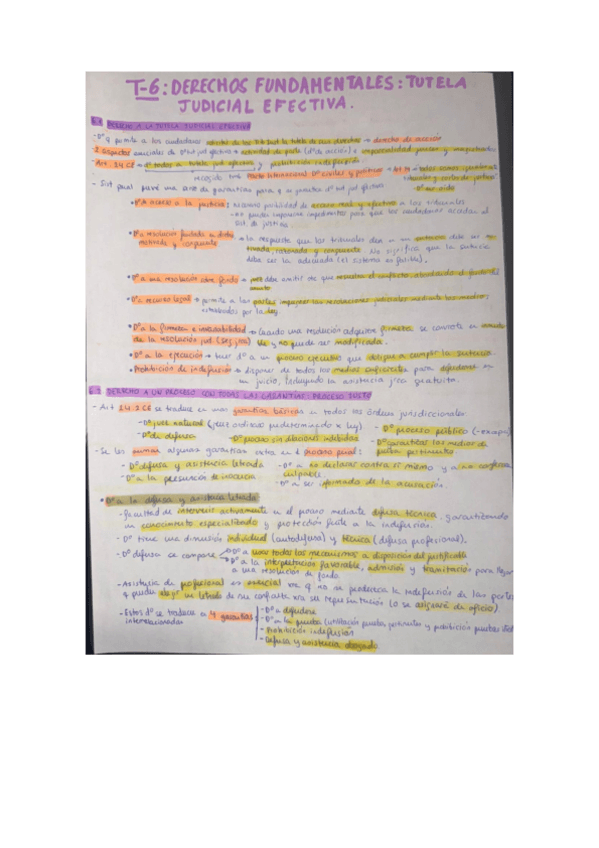 T-6: DERECHOS FUNDAMENTALES: TUTELA
JUDICIAL EFECTIVA.
6.1 DERECHO A LA TUTELA JUDICIAL EFECTIVA
-Dº q permite a los ciudadanos la tutela de sus derechos → derecho de
2 aspectos esenciales de dº tut jud efectiva → actividad de parte (dº de acción) e imparcialidad jueces y magistrados
-Art. 24 CE → dº todos a tutela jud efectiva y prohibición indefensión.
recogido Pacto Internacional Dº civiles y políticos → Art 14 → todos somos iguales
tribunales y cortes de justicia
- Sist penal prevé una serie de garantías para q se practice dº tut jud efectiva
• Dº a acceso a la justicia: posibilidad de acceso real y efectivo a los tribunales
no pueden imponerse impedimentos para que los ciudadanos accedan al
sist de justicia.
• Dº a resolución fundada en dcho
motivada y congruente → la respuesta que los tribunales den en su sentencia debe ser mo-
tivada, razonada y congruente. No significa que la sentencia
debe ser la adecuada (el sistema es falible).
• Dº a una resolución sobre fondo → juez debe emitir dec que resuelva el conflicto abordando el fondo del
asunto
• Dº a recurso legal → permite a las partes impugnar las resoluciones judiciales mediante los medios
establecidos por la ley.
• Dº a la firmeza e invariabilidad → Cuando una resolución adquiere firmeza, se convierte en
de la resolución jud (seg jca) y no puede ser modificada.
• Dº a la ejecución → tener dº a un proceso ejecutivo que obligue a cumplir la sentencia.
• Prohibición de indefensión → disponer de todos los medios suficientes para defenderse en
un juicio, incluyendo la asistencia jca gratuita.
6.2 DERECHO A UN PROCESO CON TODAS LAS GARANTÍAS: PROCESO JUSTO
- Art 24.2 CE se traduce en unas garantías básicas en todos los órdenes jurisdiccionales
-Dº juez natural (juez ordinario predeterminado x ley) - Dº proceso público
-Dº de defensa -Dº proceso sin dilaciones indebidas -Dº garantías los medios de
prueba pertinentes
-Se les suman algunas garantías extra en el proceso penal:
- Dº defensa y asistencia letrada -Dº a no declarar contra sí mismo y a no confesarse
culpable.
-Dº a la presunción de inocencia -Dº a ser informado de la acusación.
• Dº a la defensa y asistencia letrada
-facultad de intervenir activamente en el proceso mediante defensa técnica, garantizando
un conocimiento especializado y protección frente a la indefensión.
- Dº tiene una dimensión individual (autodefensa) y técnica (defensa profesional).
- Dº defensa se compone Dº a usar todos los mecanismos a disposición del justificable
Dº a la interpretación favorable, admisión y tramitación para llegar
a una resolución de fondo
-Asistencia de profesional es esencial xq no se produzca la indefensión de las partes
y puedan elegir un letrado de su confianza xra ser representación (o se asignará de oficio)
-Estos dº se traducen en 4 garantías -Dº a defenderse
interrelacionadas -Dº a la prueba (utilización pruebas pertinentes y prohibición pruebas
- Prohibición indefensión
- Defensa y asistencia abogado